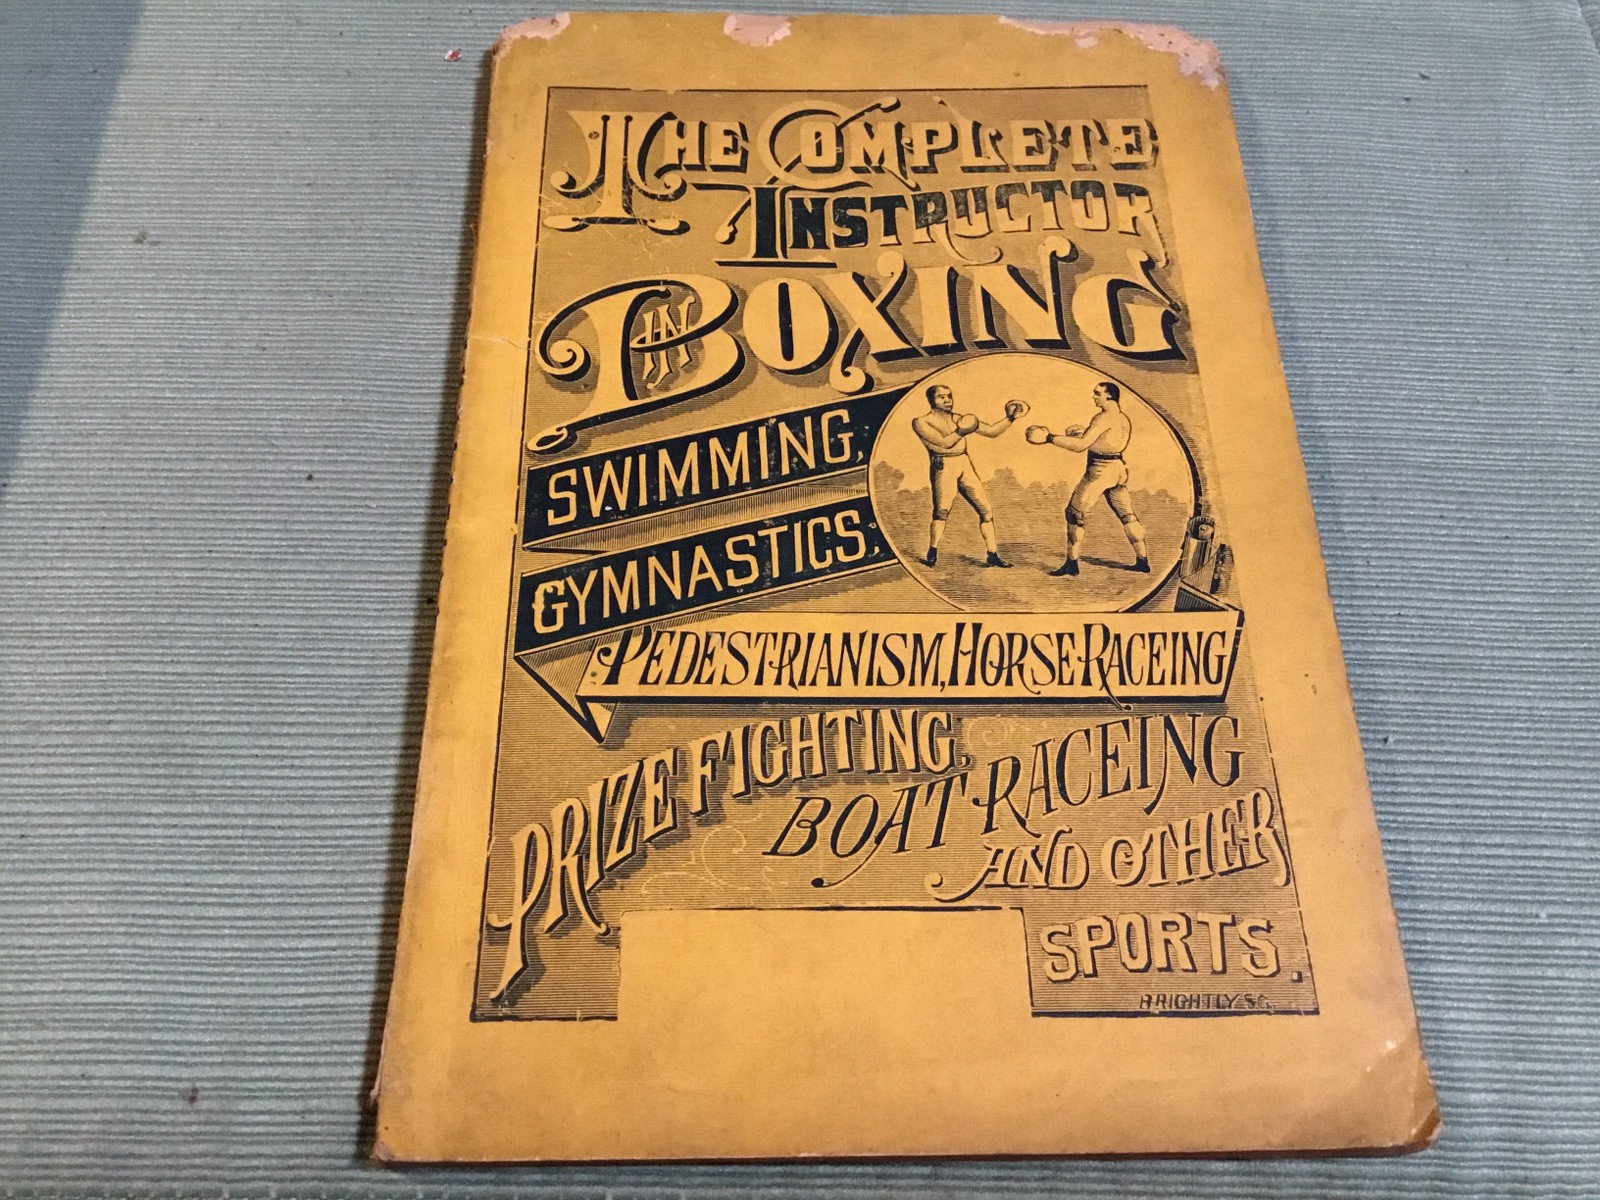 THE COMPLETE
INSTRUCTOR
IN BOXING
SWIMMING,
GYMNASTICS,
PEDESTRIANISM, HORSE RACEING
PRIZE FIGHTING,
BOAT RACEING
AND OTHER
SPORTS.
BRIGHTLY SC.